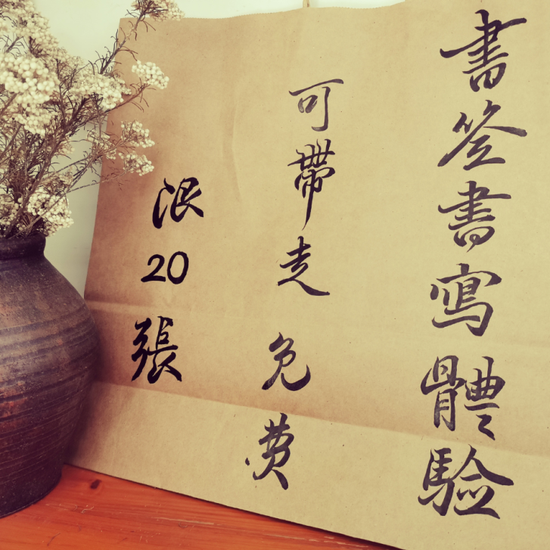 書签書寫體驗
可帶走 免费
限20張